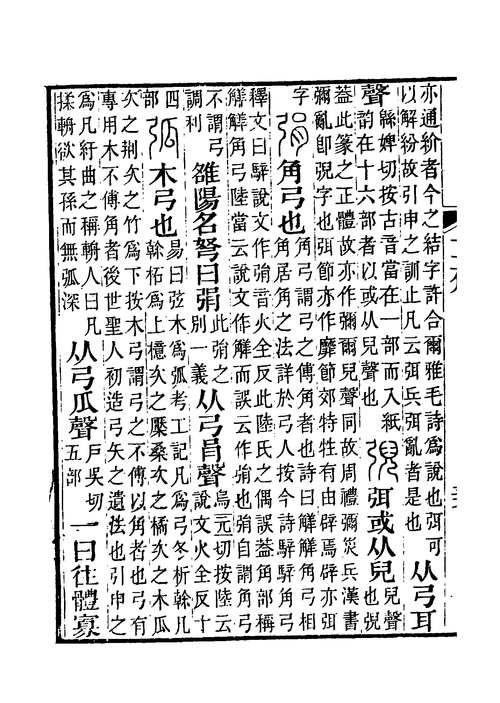 亦通紛者今之結字許合爾雅毛詩爲說也弭可
以解紛故引申之訓止凡云弭兵弭亂者是也
从弓耳
聲
緜婢切按古音當在一部而入紙
韵在十六部者以或从兒聲也
弭或从兒
兒聲
也
益此篆之正體故亦作彌爾兒聲同故周禮彌災兵漢書
彌亂卽字也弭節亦作靡節郊特牲有由辟焉辟亦弭
字
弲角弓也
角弓謂弓之傅角者也詩曰觲觲角弓相
角居角之法詳於弓人按今詩騂騂角弓
釋文曰騂說文作弲音火全反此陸氏之偶誤葢角部稱
觲觲角弓陸當云說文作觲而誤云作弲也弲自謂角弓
不謂弓
調利
雒陽名弩曰弲
此弲之
別一義
从弓肙聲
烏元切按陸云
說文火全反十
四
部
弧木弓也
易曰弦木爲弧考工記凡爲弓冬析榦凡
榦柘爲上檍次之檿桑次之橘次之木瓜
次之荆次之竹爲下按木弓謂弓之不傅以角者也弓有
專用木不傅角者後世聖人初造弓矢之遺法也引申之
爲凡紆曲之稱輈人曰凡
揉輈欲其孫而無弧深
从弓瓜聲
戶吳切
五部
一曰往體寡